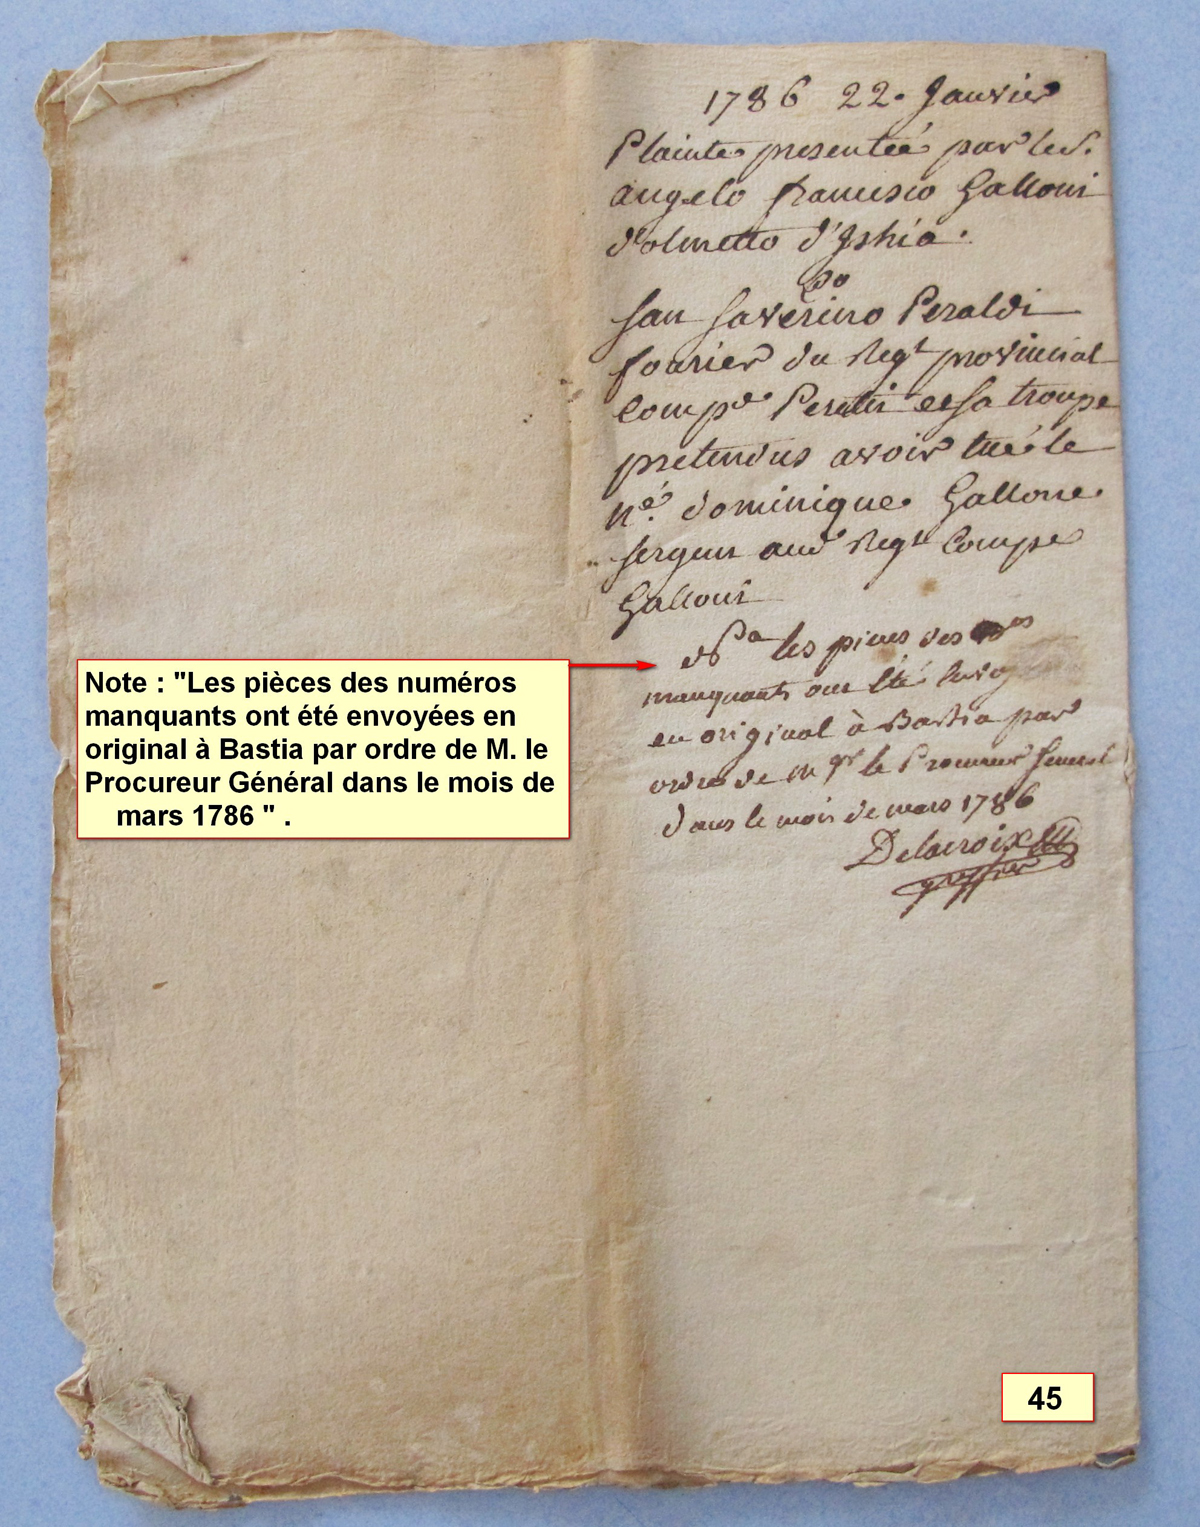 1786 22. Janvier
Plainte presentée par le S.
angelo francisco Galloni
d'olmetto d'Ishia.
Co
san Saverino Peraldi
fourier du Regt provincial
Compe Peraldi et sa troupe
pretendus avoir tué le
né. dominique Gallone
sergent aud Regt Compe
Galloni
Na les pieces des Nos
manquants ont été envoy
en original à Bastia par
ordre de Mgr le Procureur General
dans le mois de mars 1786
Delacroix
greffier
Note : "Les pièces des numéros
manquants ont été envoyées en
original à Bastia par ordre de M. le
Procureur Général dans le mois de
mars 1786 " .
45